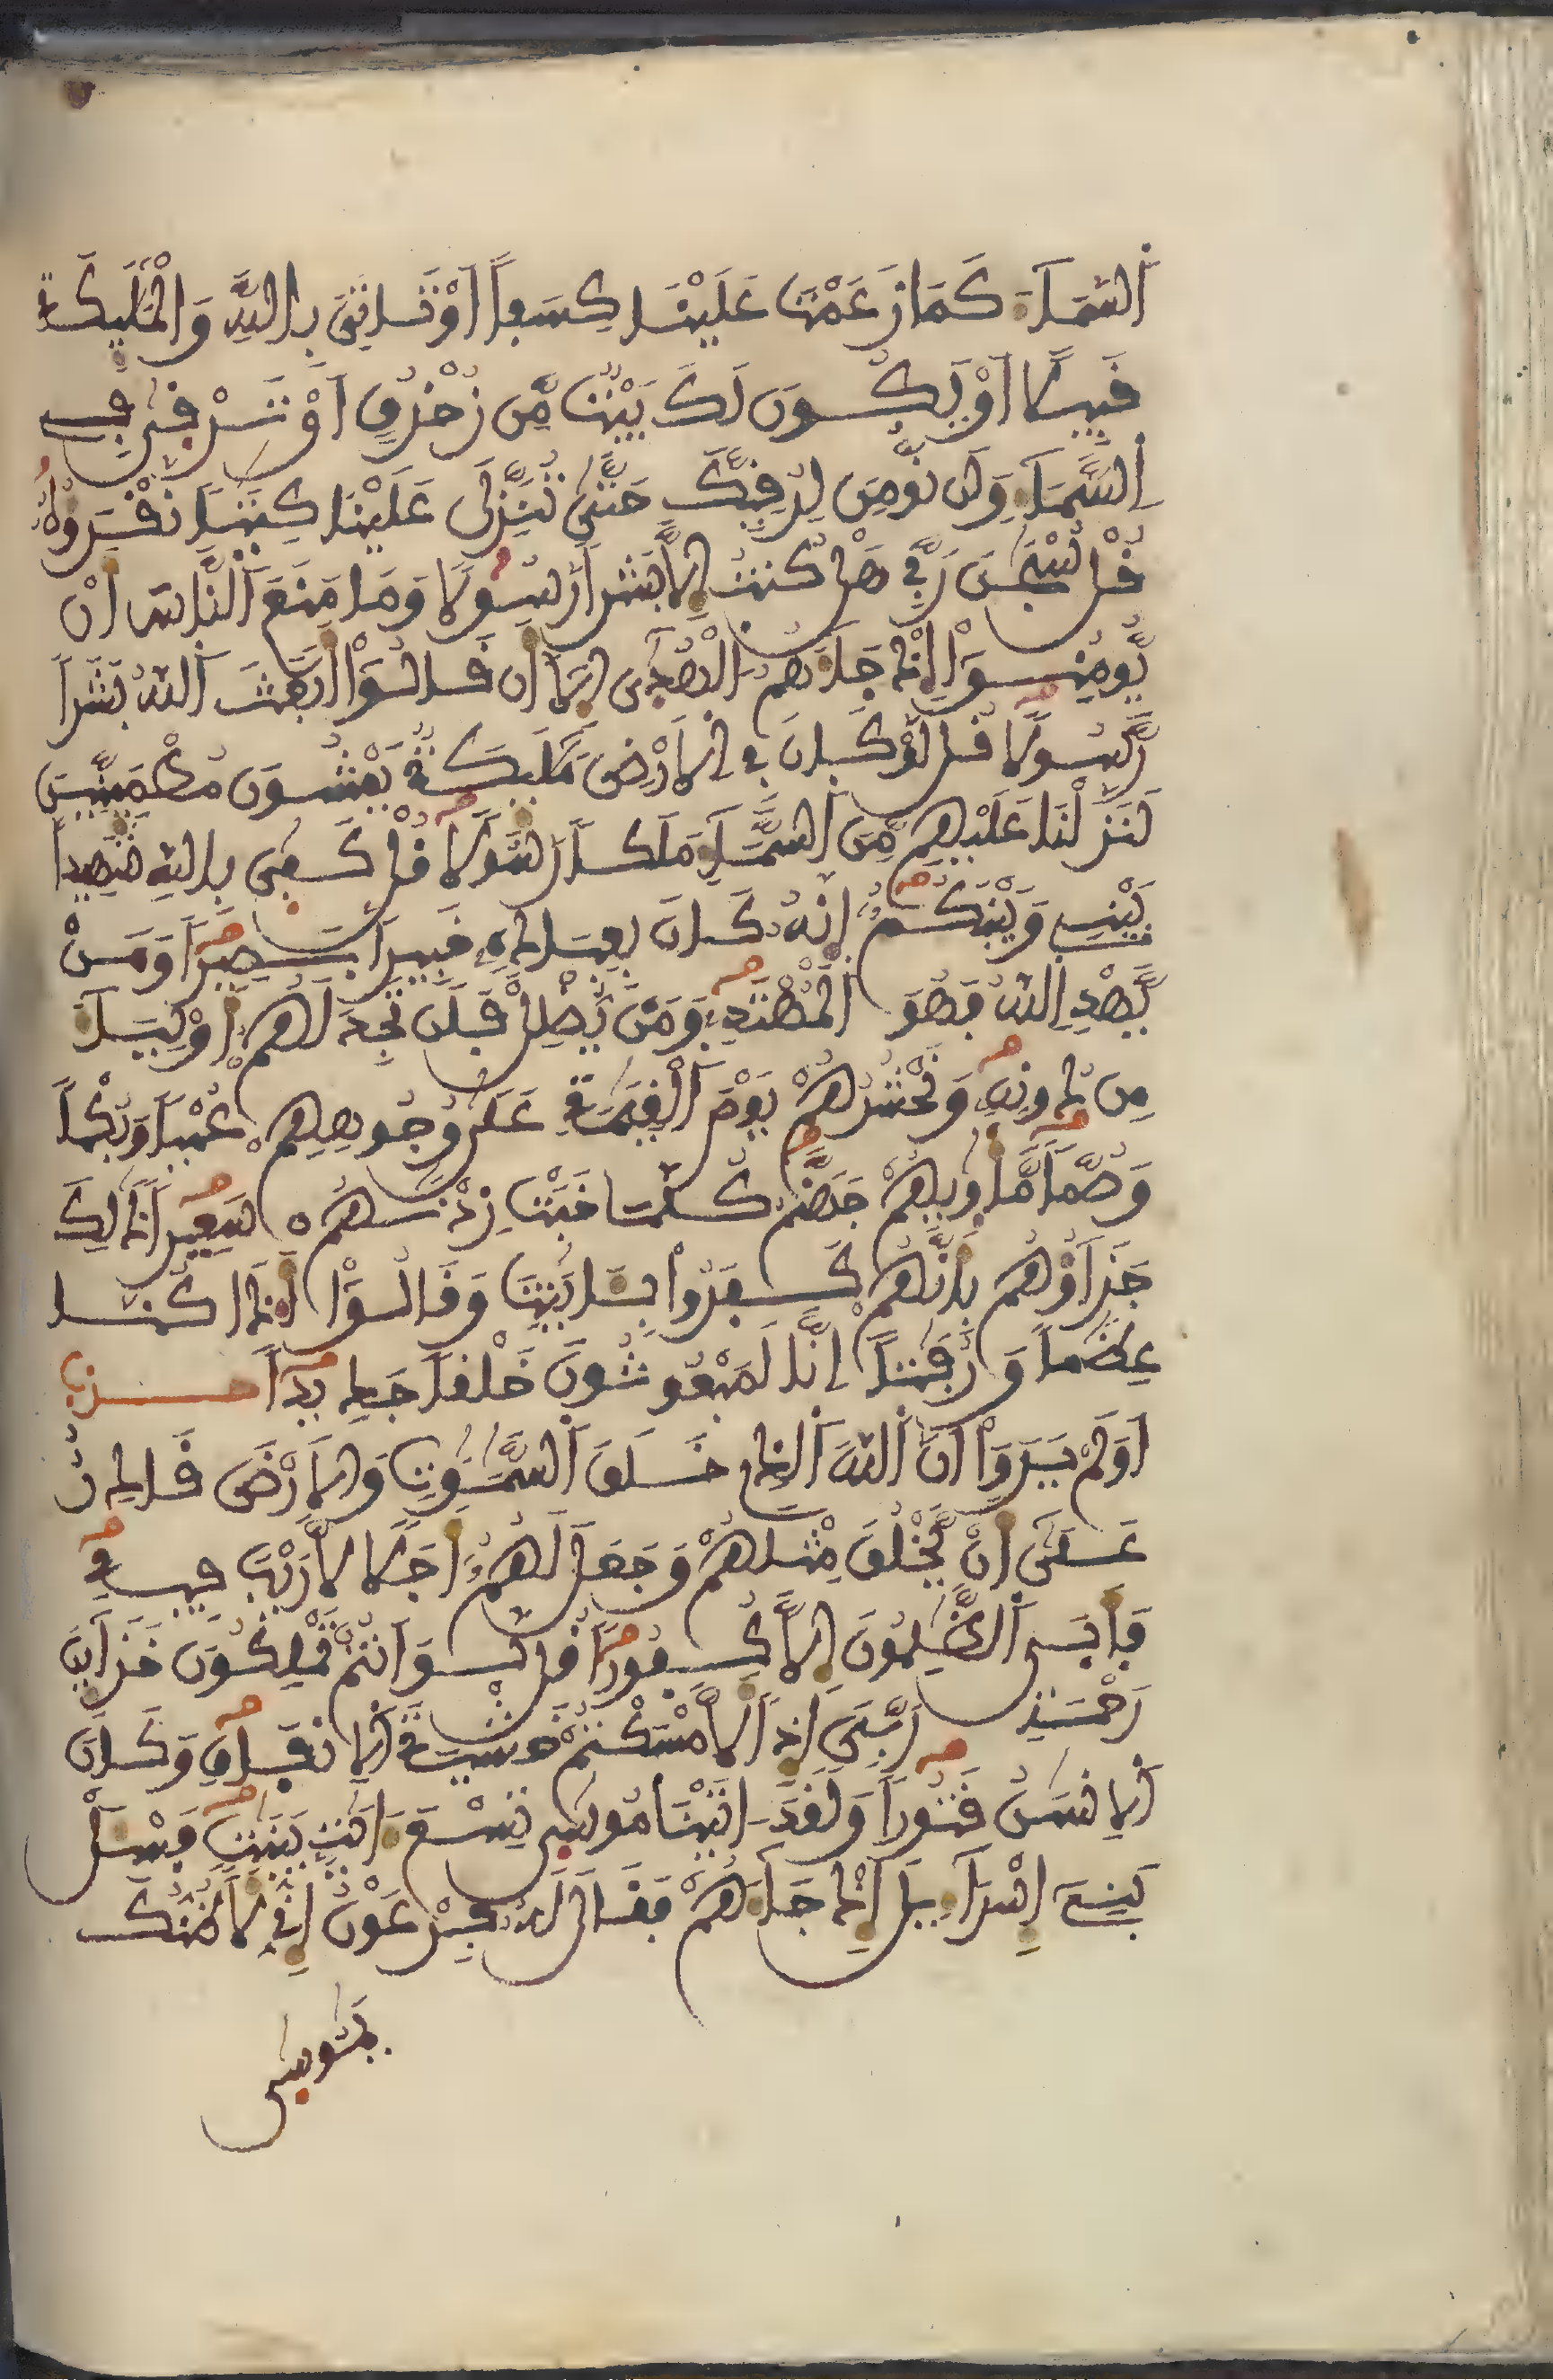 اَ۬لسَّمَآءَ كَمَا زَعَمْتَ عَلَيْنَا كِسَفاً اَوْ تَاتِيَ بِاللَّهِ وَالْمَلَٰٓئِكَةِ
قَبِيلًا اَوْ يَكُونَ لَكَ بَيْتٌ مِّن زُخْرُفٍ اَوْ تَرْقىٰ فِي
اِ۬لسَّمَآءِ وَلَن نُّومِنَ لِرُقِيِّكَ حَتَّىٰ تُنَزِّلَ عَلَيْنَا كِتَٰباً نَّقْرَؤُهُۥ
قُلْ سُبْحَٰنَ رَبِّي هَلْ كُنتُ إِلَّا بَشَراً رَّسُولًا وَمَا مَنَعَ اَ۬لنَّاسَ أَنْ
يُّومِنُوٓاْ إِذْ جَآءَهُمُ اُ۬لْهُدَىٰ إِلَّآ أَن قَالُوٓاْ أَبَعَثَ اَ۬للَّهُ بَشَراً
رَّسُولًا قُل لَّوْ كَانَ فِي اِ۬لَارْضِ مَلَٰٓئِكَةٌ يَمْشُونَ مُطْمَئِنِّينَ
لَنَزَّلْنَا عَلَيْهِم مِّنَ اَ۬لسَّمَآءِ مَلَكاً رَّسُولًا قُلْ كَفىٰ بِاللَّهِ شَهِيداً
بَيْنِي وَبَيْنَكُمُۥٓ إِنَّهُۥ كَانَ بِعِبَادِهِۦ خَبِيراً بَصِيراً وَمَنْ
يَّهْدِ اِ۬للَّهُ فَهُوَ اَ۬لْمُهْتَدِۦ وَمَنْ يُّضْلِلْ فَلَن تَجِدَ لَهُمُۥٓ أَوْلِيَآءَ
مِن دُونِهِۦ وَنَحْشُرُهُمْ يَوْمَ اَ۬لْقِيَٰمَةِ عَلَىٰ وُجُوهِهِمْ عُمْياً وَبُكْماً
وَصُمّاً مَّأْوِيٰهُمْ جَهَنَّمُ كُلَّمَا خَبَتْ زِدْنَٰهُمْ سَعِيراً ذَٰلِكَ
جَزَآؤُهُم بِأَنَّهُمْ كَفَرُواْ بِـَٔايَٰتِنَا وَقَالُوٓاْ أَ.ذَا كُنَّا
عِظَٰماً وَرُفَٰتاً اِنَّا لَمَبْعُوثُونَ خَلْقاً جَدِيداً حزب
اَوَلَمْ يَرَوَاْ اَنَّ اَ۬للَّهَ اَ۬لذِي خَلَقَ اَ۬لسَّمَٰوَٰتِ وَالَارْضَ قَادِرٌ
عَلَىٰٓ أَنْ يَّخْلُقَ مِثْلَهُمْ وَجَعَلَ لَهُمُۥٓ أَجَلًا لَّا رَيْبَ فِيهِ
فَأَبَى اَ۬لظَّٰلِمُونَ إِلَّا كُفُوراً قُل لَّوَ اَنتُمْ تَمْلِكُونَ خَزَآئِنَ
رَحْمَةِ رَبِّيَ إِذاً لَّأَمْسَكْتُمْ خَشْيَةَ اَ۬لِانفَاقِ وَكَانَ
اَ۬لِانسَٰنُ قَتُوراً وَلَقَدَ اٰتَيْنَا مُوسىٰ تِسْعَ ءَايَٰتٍ بَيِّنَٰتٍ فَسْـَٔلْ
بَنِيٓ إِسْرَآءِيلَ إِذْ جَآءَهُمْ فَقَالَ لَهُۥ فِرْعَوْنُ إِنِّي لَأَظُنُّكَ
يَٰمُوسىٰ